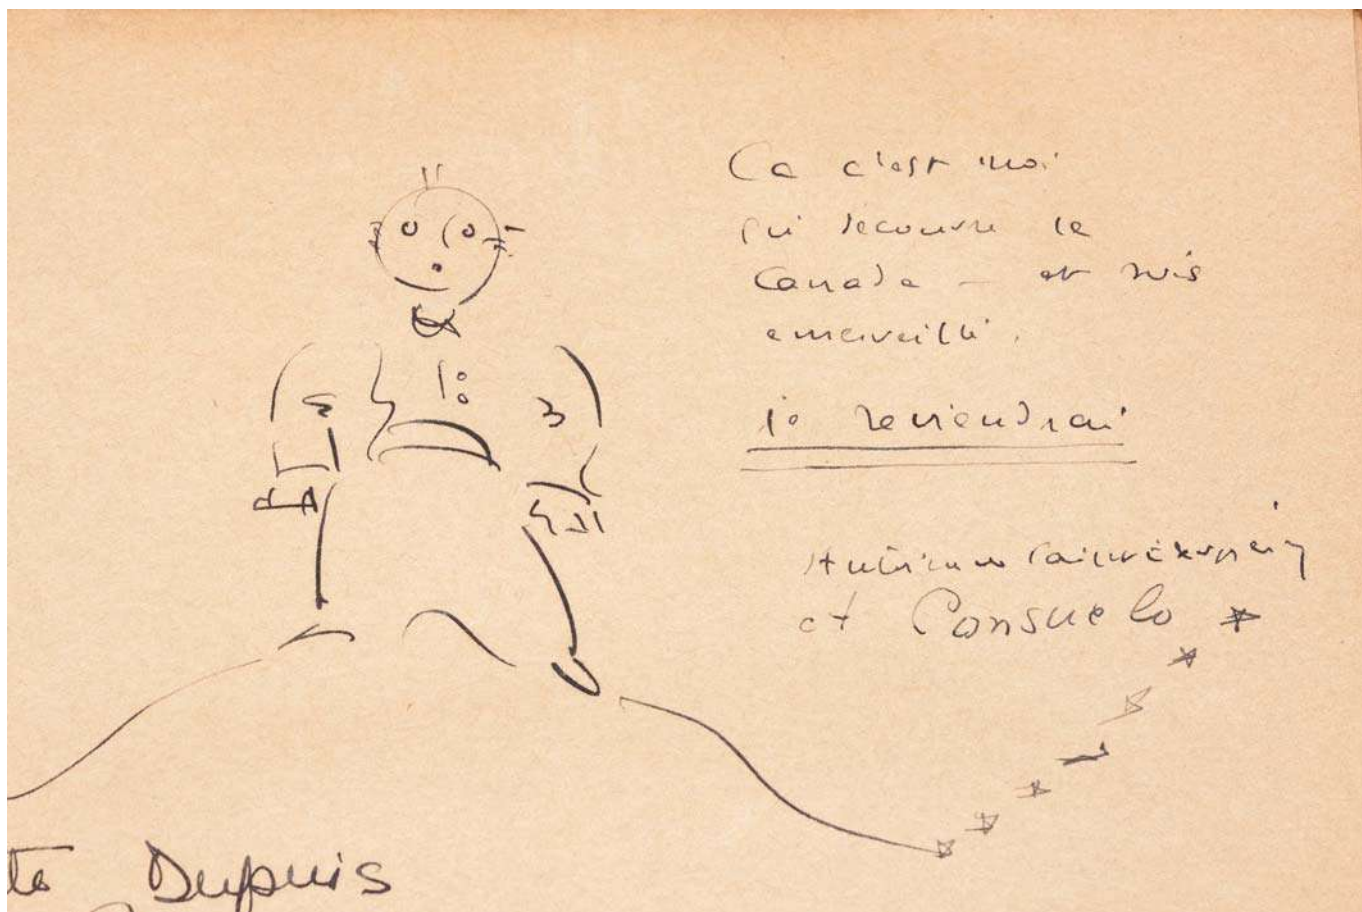 Ca c'est moi
qui decouvre le
Canada — et suis
emerveillé.
je reviendrai
Antoine de Saint Exupéry
et Consuelo
Dupuis